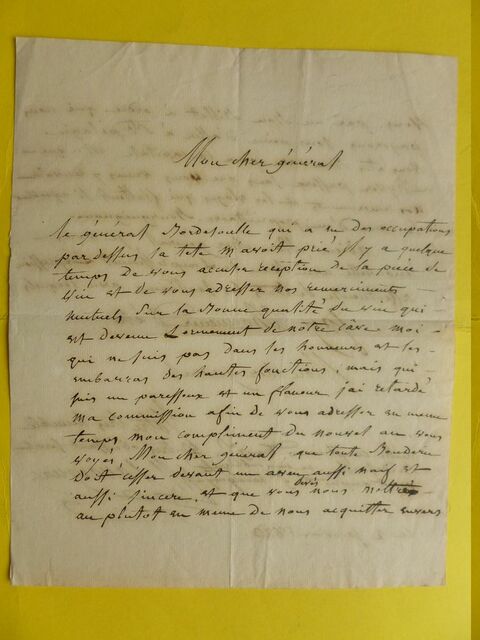 Mon cher général
le général Bordesoulle qui a eu des occupations
par dessus la tete m'avoit prié il y a quelque
temps de vous accuser reception de la pièce de
vin et de vous adresser nos remerciments
mutuels sur la bonne qualité du vin qui
est devenu l'ornement de notre cave moi
qui ne suis pas dans les honneurs et les
embarras des hautes fonctions, mais qui
suis un paresseux et un flaneur j'ai retardé
ma commission afin de vous adresser en meme
temps mon compliment du nouvel an vous
voyés, Mon cher general que toute bouderie
doit cesser devant un aveu aussi naif et
aussi sincere, et que vous devés nous mettre
au plutot en meme de nous acquitter envers